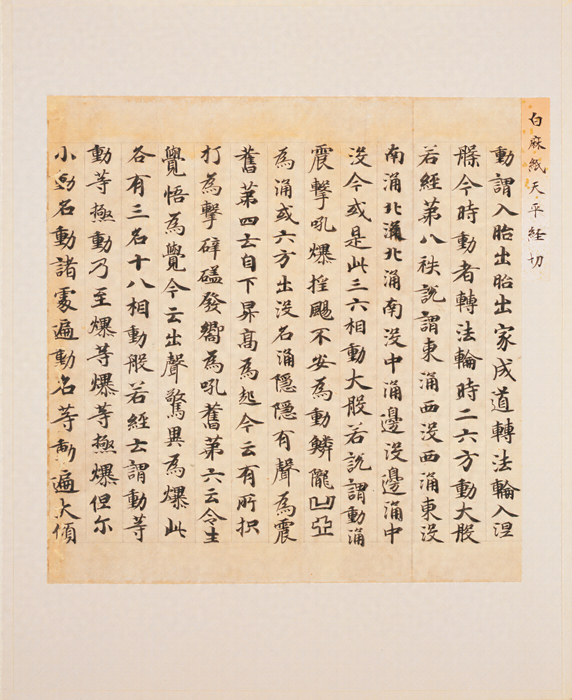 白麻紙天平経切
動謂入胎出胎出家成道轉法輪入涅
縣今時動者轉法輪時二六方動大般
若經第八秩說謂東涌西没西涌東没
南涌北没北涌南没中涌邊没邊涌中
没今或是此三六相動大般若說謂動涌
震擊吼爆搖颺不安為動鱗隴凹亞
為涌或六方出没名涌隱隱有聲為震
舊第四云自下昇高為起今云有所扣
打為擊砰磕發響為吼舊第六云令生
覺悟為覺今云出聲驚異為爆此
各有三名十八相動般若經云謂動等
動等極動乃至爆等爆等極爆但尓
小動名動諸處遍動名等動遍大傾